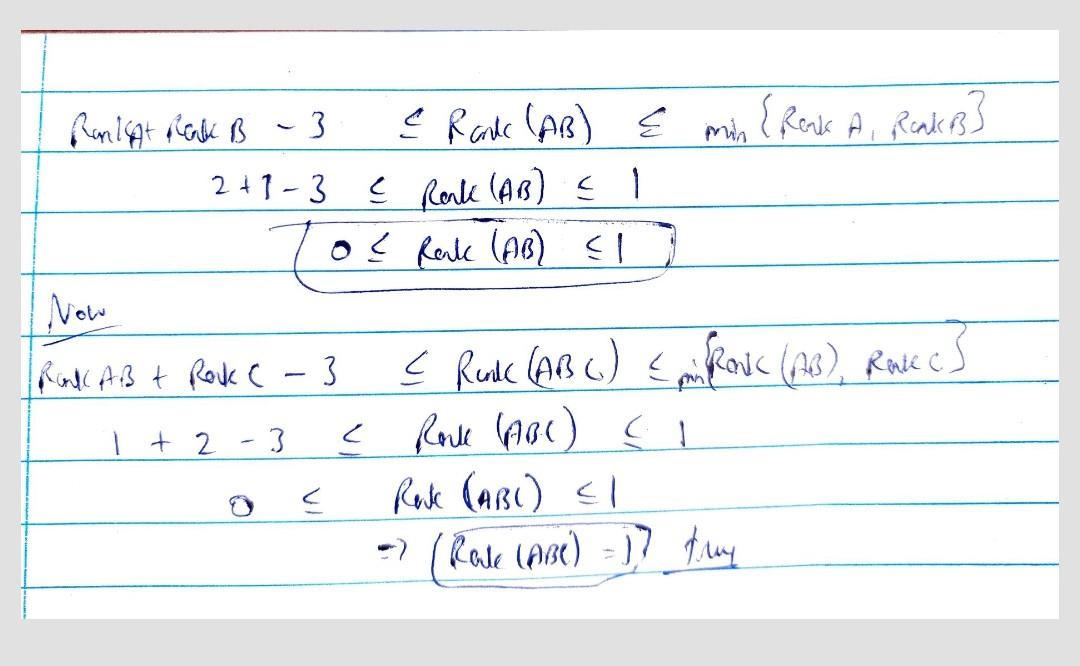 Rank A + Rank B - 3 ≤ Rank (AB) ≤ min {Rank A, Rank B}
2 + 1 - 3 ≤ Rank (AB) ≤ 1
0 ≤ Rank (AB) ≤ 1
Now
Rank AB + Rank C - 3 ≤ Rank (ABC) ≤ min{Rank (AB), Rank C}
1 + 2 - 3 ≤ Rank (ABC) ≤ 1
0 ≤ Rank (ABC) ≤ 1
=> (Rank (ABC) = 1)